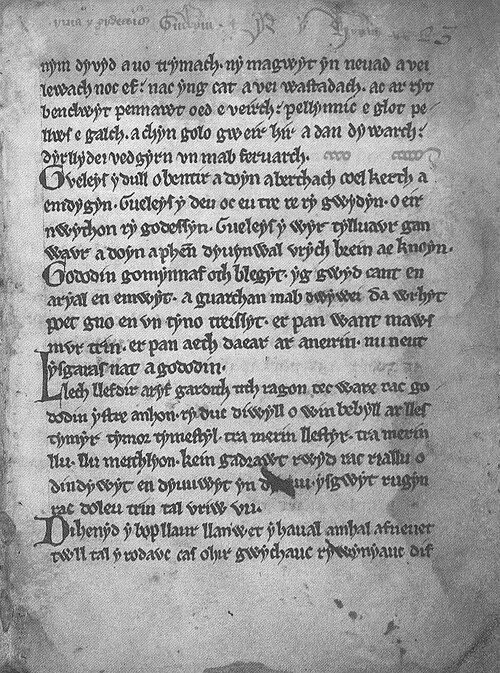 nym dyvyd a uo trymach. ny magwyt yn neuad a vei
lewach noc ef. nac yng cat a vei wastadach. ac ar ryt
benclwyt pennawt oed e veirch. pellynnic e glot pe-
llws e galch. a chyn golo gweir hir a dan dywarch.
dyrllydei vedgyrn vn mab feruarch.
Gveleys y dull o bentir a doyn aberthach coel kerth a
emdygyn. Gueleys y deu oc eu tre re ry gwydyn. o eir
nwython ry godessyn. Gueleys y wyr tylluavr gan
wavr a doyn a phen dyuynwal vrych brein ae knoyn.
Gododin gomynnaf oth blegyt. yg gwyd cant en
aryal en emwyt. a guarchan mab dwywei da wrhyt
poet gno en vn tyno treissyt. er pan want maws
mvr trin. er pan aeth daear ar aneirin. nu neut
ysgaras nat a gododin.
Llech llefdir aryf gardith tith ragon tec ware rac go
dodin ystre anhon. ry duc diwyll o win bebyll ar lles
tymyr. tymor tymestyl. tra merin llestyr. tra merin
llu. llu meithlyon. kein gadrawt rwyd rac riallu o
dindywyt en dyuuwyt yn ysgwyt rugyn
rac doleu trin tal vriw vu.
Dihenyd y bop llaur llanwet y haual amhal afneuet
twll tal y rodavc cas ohir gwychauc rywynyauc dif